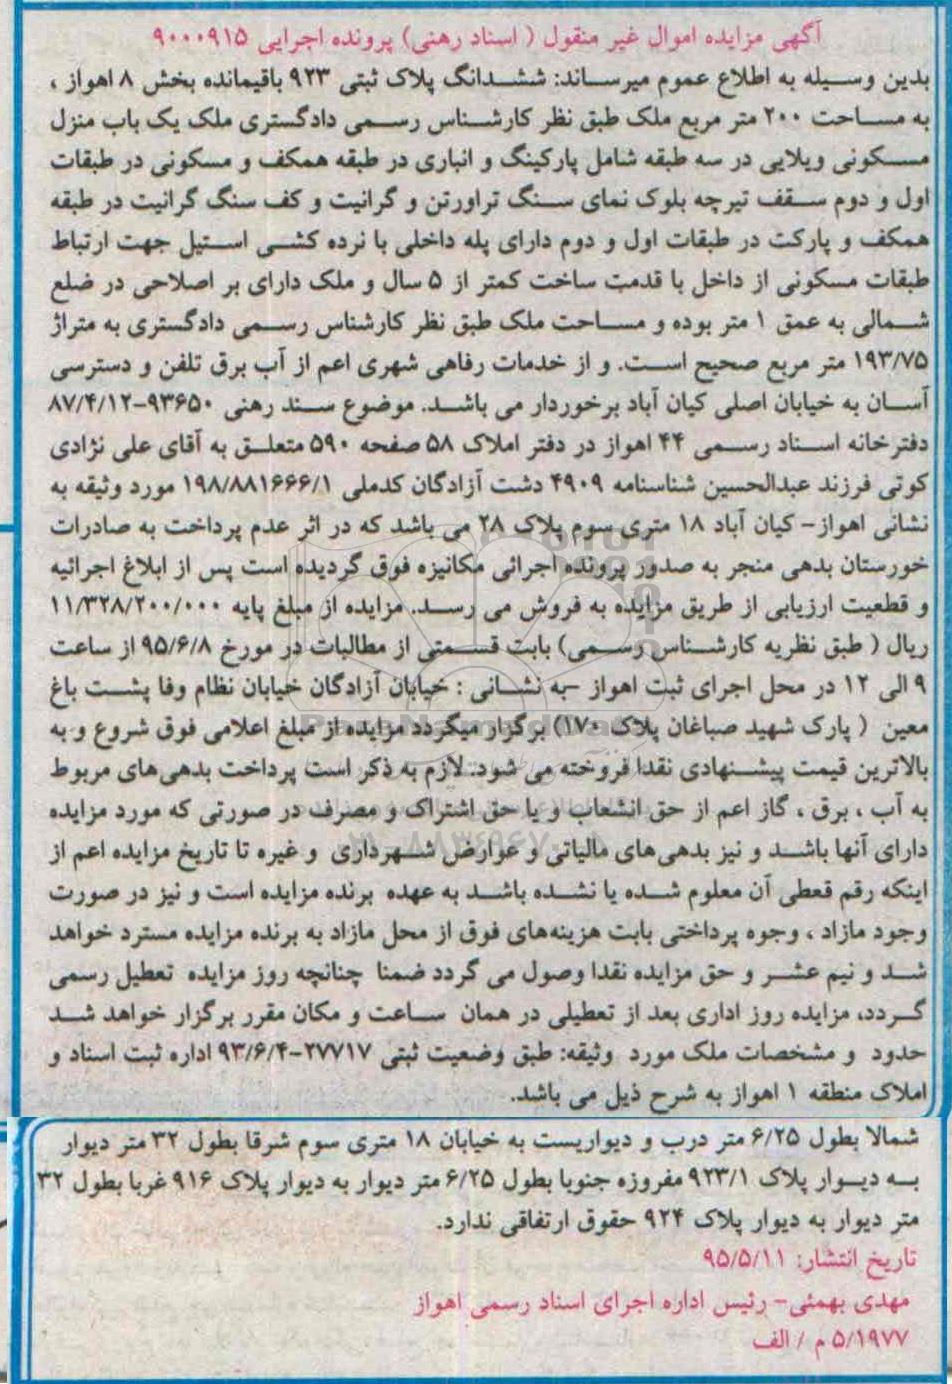 آگهی مزایده اموال غیر منقول ( اسناد رهنی) پرونده اجرایی ۹۰۰۰۹۱۵
بدین وسیله به اطلاع عموم میرساند: ششدانگ پلاک ثبتی ۹۲۳ باقیمانده بخش ۸ اهواز ،
به مساحت ۲۰۰ متر مربع ملک طبق نظر کارشناس رسمی دادگستری ملک یک باب منزل
مسکونی ویلایی در سه طبقه شامل پارکینگ و انباری در طبقه همکف و مسکونی در طبقات
اول و دوم سقف تیرچه بلوک نمای سنگ تراورتن و گرانیت و کف سنگ گرانیت در طبقه
همکف و پارکت در طبقات اول و دوم دارای پله داخلی با نرده کشی استیل جهت ارتباط
طبقات مسکونی از داخل با قدمت ساخت کمتر از ۵ سال و ملک دارای بر اصلاحی در ضلع
شمالی به عمق ۱ متر بوده و مساحت ملک طبق نظر کارشناس رسمی دادگستری به متراژ
۱۹۳/۷۵ متر مربع صحیح است. و از خدمات رفاهی شهری اعم از آب برق تلفن و دسترسی
آسان به خیابان اصلی کیان آباد برخوردار می باشد. موضوع سند رهنی ۹۳۶۵۰-۸۷/۴/۱۲
دفترخانه اسناد رسمی ۴۴ اهواز در دفتر املاک ۵۸ صفحه ۵۹۰ متعلق به آقای علی نژادی
کوتی فرزند عبدالحسین شناسنامه ۴۹۰۹ دشت آزادگان کدملی ۱۹۸/۸۸۱۶۶۶/۱ مورد وثیقه به
نشانی اهواز- کیان آباد ۱۸ متری سوم پلاک ۲۸ می باشد که در اثر عدم پرداخت به صادرات
خورستان بدهی منجر به صدور پرونده اجرائی مکانیزه فوق گردیده است پس از ابلاغ اجرائیه
و قطعیت ارزیابی از طریق مزایده به فروش می رسد. مزایده از مبلغ پایه ۱۱/۳۲۸/۲۰۰/۰۰۰
ریال ( طبق نظریه کارشناس رسمی) بابت قسمتی از مطالبات در مورخ ۹۵/۶/۸ از ساعت
۹ الی ۱۲ در محل اجرای ثبت اهواز –به نشانی : خیابان آزادگان خیابان نظام وفا پشت باغ
معین ( پارک شهید صباغان پلاک ۱۷۰) برگزار میگردد مزایده از مبلغ اعلامی فوق شروع و به
بالاترین قیمت پیشنهادی نقدا فروخته می شود. لازم به ذکر است پرداخت بدهی های مربوط
به آب ، برق ، گاز اعم از حق انشعاب و یا حق اشتراک و مصرف در صورتی که مورد مزایده
دارای آنها باشد و نیز بدهی های مالیاتی و عوارض شهرداری و غیره تا تاریخ مزایده اعم از
اینکه رقم قعطی آن معلوم شده یا نشده باشد به عهده برنده مزایده است و نیز در صورت
وجود مازاد ، وجوه پرداختی بابت هزینه‌های فوق از محل مازاد به برنده مزایده مسترد خواهد
شد و نیم عشر و حق مزایده نقدا وصول می گردد ضمنا چنانچه روز مزایده تعطیل رسمی
گردد، مزایده روز اداری بعد از تعطیلی در همان ساعت و مکان مقرر برگزار خواهد شد
حدود و مشخصات ملک مورد وثیقه: طبق وضعیت ثبتی ۲۷۷۱۷-۹۳/۶/۴ اداره ثبت اسناد و
املاک منطقه ۱ اهواز به شرح ذیل می باشد.
شمالا بطول ۶/۲۵ متر درب و دیواریست به خیابان ۱۸ متری سوم شرقا بطول ۳۲ متر دیوار
به دیوار پلاک ۹۲۳/۱ مفروزه جنوبا بطول ۶/۲۵ متر دیوار به دیوار پلاک ۹۱۶ غربا بطول ۳۲
متر دیوار به دیوار پلاک ۹۲۴ حقوق ارتفاقی ندارد.
تاریخ انتشار: ۹۵/۵/۱۱
مهدی بهمئی- رئیس اداره اجرای اسناد رسمی اهواز
۵/۱۹۷۷ م / الف